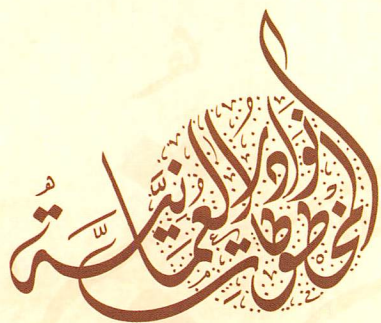 نوادر المخطوطات العمانية